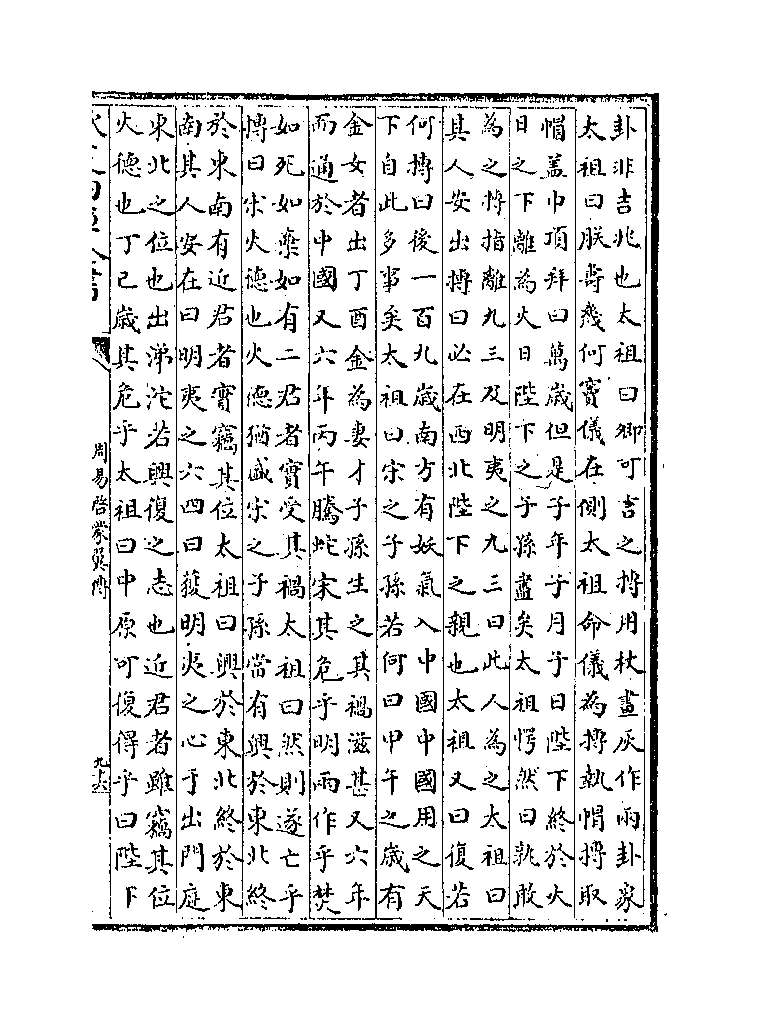 卦非吉兆也太祖曰卿可言之摶用杖畫灰作兩卦象
太祖曰朕壽幾何竇儀在側太祖命儀為摶執帽摶取
帽盖巾頂拜曰萬歲但是子年子月子日陛下終於火
日之下離為火日陛下之子孫盡矣太祖愕然曰孰敢
為之摶指離九三及明夷之九三曰此人為之太祖曰
其人安出摶曰必在西北陛下之親也太祖又曰復若
何摶曰後一百九歲南方有妖氣入中國中國用之天
下自此多事矣太祖曰宋之子孫若何曰甲午之歲有
金女者出丁酉金為妻才子孫生之其禍滋甚又六年
而通於中國又六年丙午騰蛇宋其危乎明兩作乎焚
如死如棄如有二君者實受其禍太祖曰然則遂亡乎
摶曰宋火德也火德猶盛宋之子孫當有興於東北終
於東南有近君者實竊其位太祖曰興於東北終於東
南其人安在曰明夷之六四曰獲明夷之心于出門庭
東北之位也出涕沱若興復之志也近君者雖竊其位
火德也丁巳歲其危乎太祖曰中原可復得乎曰陛下
周易啓蒙翼傳